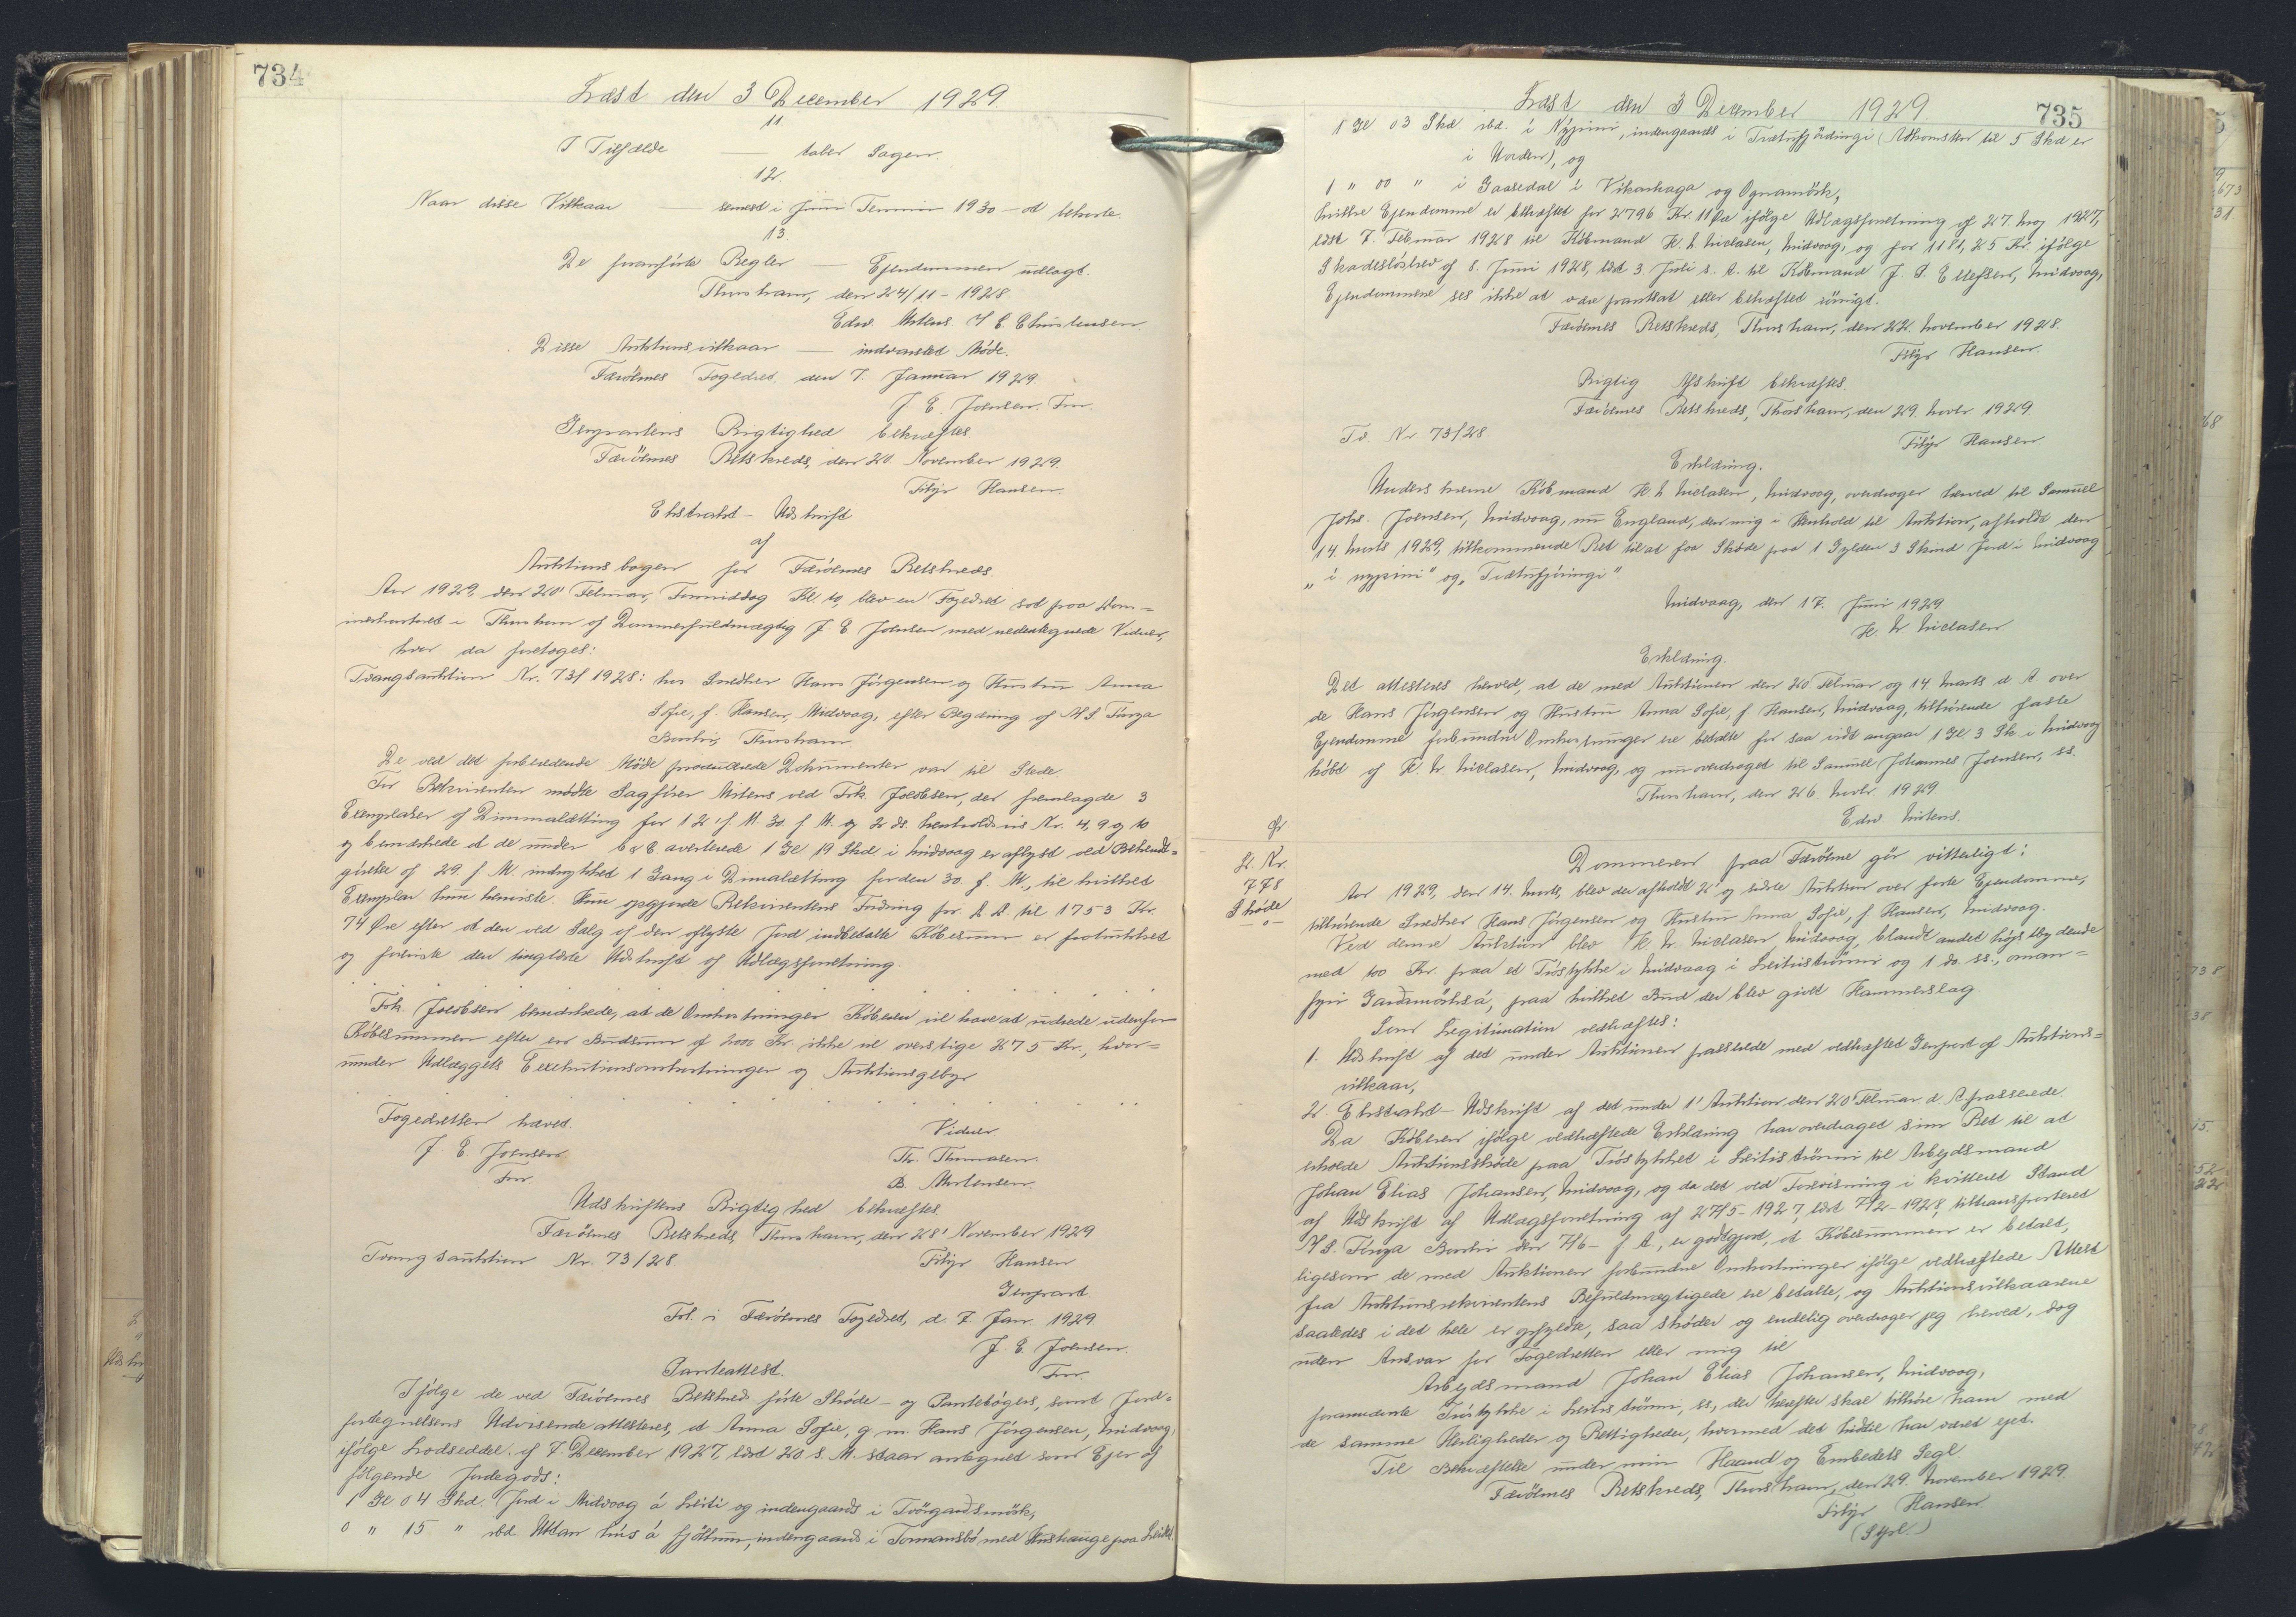 734
Læst den 3 December 1929.
11.
I Tilfælde — taber Sagen.
12.
Naar disse Vilkaar — senest i Juni Termin 1930 – at behæfte.
13.
De foranførte Regler — Ejendommen udlagt.
Thorshavn, den 24/11 – 1928
Edw. Mitens. J E Christensen
Disse Auktionsvilkaar — indvarslet Møde.
Færöernes Fogedret, den 7. Januar 1929.
J. E. Joensen. Fm.
Genpartens Rigtighed bekræftes.
Færöernes Retskreds, den 20. November 1929.
Filip Hansen.
Ekstrakt – Udskrift
af
Auktionsbogen for Færöernes Retskreds.
Aar 1929, den 20' Februar, Formiddag Kl. 10, blev en Fogedret sat paa Dom=
merkontoret i Thorshavn af Dommerfuldmægtig J. E. Joensen med nedentegnede Vidner,
hvor da foretoges:
Tvangsauktion Nr. 73/1928: hos Snedker Hans Jörgensen og Hustru Anna
Sofie, f. Hansen, Midvaag, efter Begæring af A/S. Föroya
Banki, Thorshavn
De ved det forberedende Møde producerede Dokumenter var til Stede.
For Rekvirenten mødte Sagfører Mitens ved Frk. Jacobsen, der fremlagde 3
Exemplarer af Dimmalætting for 12' f. M. 30. f. M. og 2 ds. henholdsvis Nr. 4, 9 og 10
og bemærkede at de under b & c averterede 1 Gl. 19 Skd i Midvaag er aflyst ved Bekendt=
görelse af 29. f M. indrykket 1 Gang i Dimalætting for den 30. f. M., til hvilket
Exemplar hun henviste. Hun opgjorde Rekvirentens Fordring for A. A. til 1753 Kr.
74 Øre efter at den ved Salg af den aflyste Jord indbetalte Købesum er fratrukket
og foreviste den tinglæste Udskrift af Udlægsforretning.
Frk. Jacobsen bemærkede, at de Omkostninger Køberen vil have at udrede udenfor
Købesummen efter en Budsum af 2000 Kr. ikke vil overstige 275 Kr., hvor=
under Udlæggets Executionsomkostninger og Auktionsgebyr
Fogedretten hævet.
J E Joensen
Fm.
Vidner
Th. Thomasen.
B. Mortensen.
Udskriftens Rigtighed bekræftes
Færöernes Retskreds, Thorshavn, den 28' November 1929
Tvangsauktion Nr. 73/28
Filip Hansen
Genpart
Frl. i Færöernes Fogedret, d. 7. Jan. 1929
J. E. Joensen.
Fm.
Panteattest.
Ifølge de ved Færöernes Retskreds førte Skøde – og Pantebøgers, samt Jord=
fortegnelsens Udvisende attesteres, at Anna Sofie, g. m. Hans Jörgensen, Midvaag,
ifølge Lodseddel af 7. December 1927, læst 20 s. M. staar antegnet som Ejer af
følgende Jordegods:
1 Gl 04 Skd. Jord i Midvaag á Leiti og indengaards i Tvörgardsmörk,
0 " 15 " sbd Uttan hús á fjöllum, indengaards i Tormansbö med Hushauge paa Leiti
735
Læst den 3 December 1929.
1 Gl 03 Skd sbd. i Nýpini, indengaards i Trætufjördingi (Adkomsten til 5 Skd er
i Uorden), og
1 " 00 " i Gaasedal i Vikarhaga og Ognamörk,
hvilke Ejendomme er behæftet for 2796 Kr. 11 Øre ifølge Udlagsforretning af 27. Maj 1927,
læst 7. Februar 1928 til Købmand H. N. Niclasen, Midvaag, og for 1181,25 Kr. ifølge
Skadesløsbrev af 8. Juni 1928, læst 3. Juli s. A. til Købmand J. S. Ellefsen, Midvaag,
Ejendommene ses ikke at være pantsat eller behæftet iövrigt.
Færöernes Retskreds, Thorshavn, den 22. November 1928.
Filip Hansen.
Rigtig Afskrift bekræftes.
Færöernes Retskreds, Thorshavn, den 29. Novbr 1929.
Tv. Nr 73/28.
Filip Hansen
Erklæring.
Underskrevne Købmand H. N. Niclasen, Midvaag, overdrager herved til Samuel
Johs. Joensen, Midvaag, nu England, den mig i Henhold til Auktion, afholdt den
14. Marts 1929, tilkommende Ret til at faa Skøde paa 1 Gylden 3 Skind Jord i Midvaag
„ i nypini" og „Trætufjöringi"
Midvaag, den 17. Juni 1929
H. N. Niclasen.
Erklæring.
Det attesteres herved, at de med Auktionen den 20 Februar og 14. Marts d. A over
de Hans Jörgensen og Hustru Anna Sofie, f. Hansen, Midvaag, tilhørende faste
Ejendomme forbundne Omkostninger ere betalte for saa vidt angaar 1 Gl 3 Sk i Midvaag
købt af H. N. Niclasen, Midvaag, og nu overdraget til Samuel Johannes Joensen, ss.
Thorshavn, den 26. Novbr. 1929
Edw. Mitens.
L. Nr.
778
Skøde
Dommeren paa Færöerne gör vitterligt:
Aar 1929, den 14. Marts, blev der afholdt 2' og sidste Auktion over faste Ejendomme,
tilhørende Snedker Hans Jörgensen og Hustru Anna Sofie, f. Hansen, Midvaag.
Ved denne Auktion blev H. N. Niclasen, Midvaag, blandt andet højstbydende
med 100 Kr. paa et Tröstykke i Midvaag i Leitiströnni og 1 do. ss., oman=
fyri Gardsmörksá, paa hvilket Bud der blev givet Hammerslag.
Som Legitimation vedhæftes:
1. Udskrift af det under Auktionen passerede med vedhæftet Genpart af Auktions=
vilkaar,
2. Ekstrakt – Udskrift af det under 1' Auktion den 20' Februar d. A. passerede.
Da Køberen ifølge vedhæftede Erklæring har overdraget sin Ret til at
erholde Auktionsskøde paa Tröstykket i Leitiströnni til Arbejdsmand
Johan Elias Johansen, Midvaag, og da det ved Forevisning i kvitteret Stand
af Udskrift af Udlægsforretning af 27/5 – 1927, læst 7/2 – 1928, tiltransporteret
A/S. Föroya Banki den 7/6 – f. A., er godtgjort, at Købesummen er betalt,
ligesom de med Auktionen forbundne Omkostninger ifølge vedhæftede Attest
fra Auktionsrekvirentens Befuldmægtigede ere betalte, og Auktionsvilkaarene
saaledes i det hele er opfyldte, saa skøder og endelig overdrager jeg herved, dog
uden Ansvar for Fogedretten eller mig til
Arbejdsmand Johan Elias Johansen, Midvaag,
forannævnte Tröstykke i Leitiströnni, ss., der herefter skal tilhøre ham med
de samme Herligheder og Rettigheder, hvormed det hidtil har været ejet.
Til Bekræftelse under min Haand og Embedets Segl.
Færöernes Retskreds, Thorshavn, den 29. November 1929.
Filip Hansen
(Segl.)